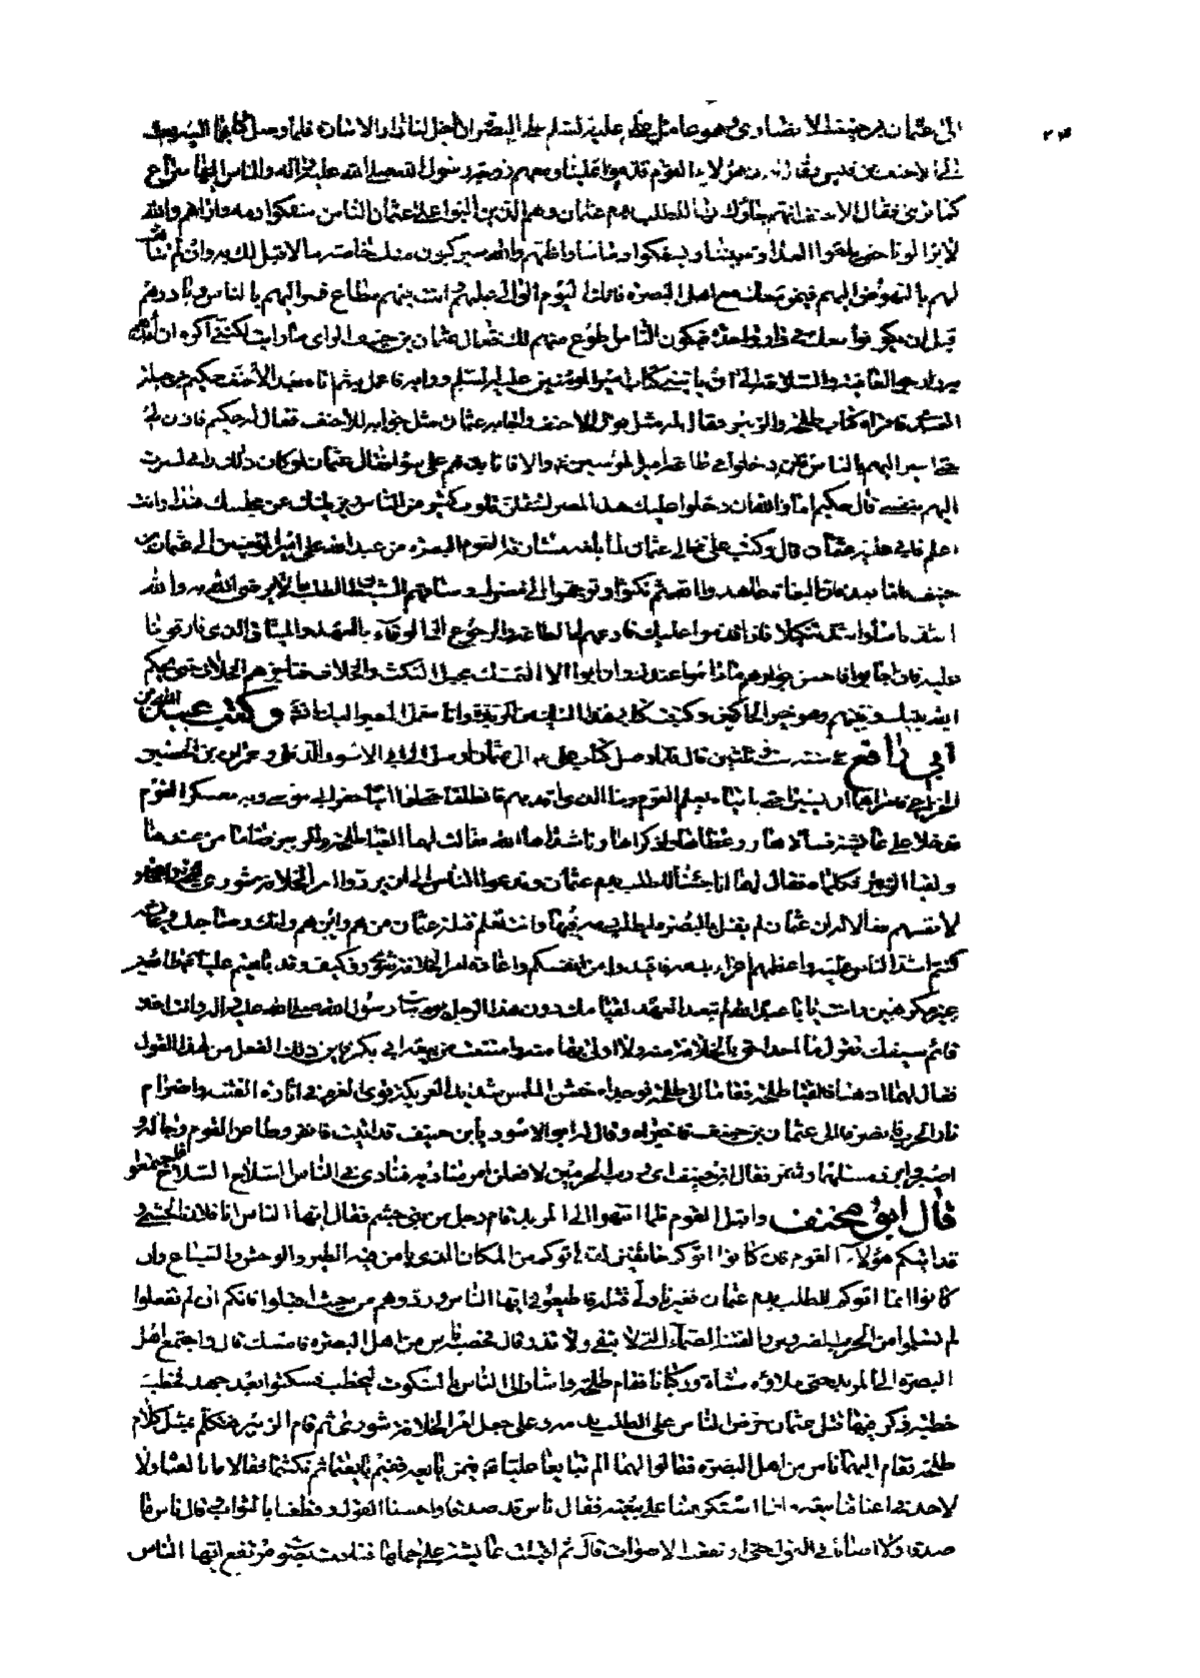 الى عثمان بن حنيف الانصاري وهو عامل علي عليه السلام على البصرة ان اخل لنا دار الامارة فلما وصل كتابهما اليه بعث
الى الاحنف بن قيس فقال له ان هؤلاء القوم قدموا علينا ومعهم زوجة رسول الله صلى الله عليه واله والناس اليها سراع
كما ترى فقال الاحنف انهم جاؤك بها للطلب بدم عثمان وهم الذين البوا على عثمان الناس وسفكوا دمه واراهم والله
لا يزالونا حتى يلقوا العداوة بيننا ويسفكوا دماءنا واظنهم والله سيركبون منك خاصة ما لا قبل لك به وان لم تتأهب
لهم بالنهوض اليهم فيمن معك من اهل البصرة فانك اليوم الوالي عليهم انت فيهم مطاع فسر اليهم بالناس وبادرهم
قبل ان يكونوا معك في دار واحدة فيكون الناس اطوع منهم لك فقال عثمان بن حنيف الراي ما رايت لكنني اكره ان
وارجو العافية والسلامة الى ان ياتيني كتاب امير المؤمنين عليه السلم ورايه فاعمل به ثم اتاه بعد الاحنف حكيم بن جبلة
العبدي فاقراه كتاب طلحة والزبير فقال له مثل قول الاحنف واجابه عثمان مثل جوابه للاحنف فقال له حكيم فاذن لي
حتى اسير اليهم بالناس فان دخلوا في طاعة امير المؤمنين والا نابذتهم على سواء فقال عثمان لو كان ذلك رايي لسرت
اليهم بنفسي قال حكيم اما والله ان دخلوا عليك هذا المصر لتنتقلن قلوب كثير من الناس اليهم وليزيلنك عن مجلسك هذا وانت
اعلم فابى عليه عثمان قال وكتب علي الى عثمان لما بلغه مشارفة القوم البصرة من عبد الله علي امير المؤمنين الى عثمان بن
حنيف اما بعد فان البغاة عاهدوا الله ثم نكثوا وتوجهوا الى مصرك وساقهم الشيطان لطلب ما لا يرضى الله به والله
اشد باسا واشد تنكيلا فاذا قدموا عليك فادعهم الى الطاعة والرجوع الى الوفاء بالعهد والميثاق الذي فارقونا
عليه فان اجابوا فاحسن جوارهم ما داموا عندك وان ابوا الا التمسك بحبل النكث والخلاف فناجزهم القتال حتى يحكم
الله بينك وبينهم وهو خير الحاكمين وكتبت كتابي هذا اليك من الربذة وانا معجل المسير اليك انشاء الله وكتب عبيد الله بن
ابي رافع في سنة ست وثلثين قال فلما وصل كتاب علي الى عثمان ارسل الى ابي الاسود الدئلي وعمران بن الحصين
الخزاعي فامرهما ان يسيرا حتى ياتياه بعلم القوم وما الذي اقدمهم فانطلقا حتى اتيا حفر ابي موسى وبه معسكر القوم
فدخلا على عائشة فسألاها ووعظاها واذكراها وناشداها الله فقالت لهما القيا طلحة والزبير فقاما من عندها
ولقيا الزبير فكلماه فقال لهما انا جئنا للطلب بدم عثمان وندعوا الناس الى ان يردوا امر الخلافة شورى ليختار الناس
لانفسهم فقالا له ان عثمان لم يقتل بالبصرة ليطلب دمه فيها وانت تعلم قتلة عثمان من هم واين هم وانك وصاحبك وعائشة
كنتم اشد الناس عليه واعظمهم اغراء بدمه فاقيدوا من انفسكم واما اعادة امر الخلافة شورى فكيف وقد بايعتم عليا طائعين
غير مكرهين وانت يا ابا عبد الله لم تبعد العهد بقيامك دون هذا الرجل يوم مات رسول الله صلى الله عليه واله وانت اخذ
قائم سيفك تقول ما احد احق بالخلافة منه ولا اولى بها منه وامتنعت من بيعة ابي بكر فاين ذلك الفعل من هذا القول
فقال لهما اذهبا فالقيا طلحة فقاما الى طلحة فوجداه خشن الملمس شديد العريكة قوي العزم في اثارة الفتنة واضرام
نار الحرب فانصرفا الى عثمان بن حنيف فاخبراه وقال له ابو الاسود يابن حنيف قد اتيت فانفر وطاعن القوم وجالد و
اصبر وابرز مستلئما وشمر فقال ابن حنيف اي ورب الحرمين لافعلن وامر مناديه فنادى في الناس السلاح السلاح فاجتمعوا
قال ابو مخنف واقبل القوم فلما انتهوا الى المربد قام رجل من بني جشم فقال ايها الناس انا فلان الجشمي و
قد اتيكم هؤلاء القوم فان كانوا اتوكم خائفين لقد اتوكم من المكان الذي يامن فيه الطير والوحش والسباع وان
كانوا انما اتوكم للطلب بدم عثمان فغيرنا ولي قتله فاطيعوني ايها الناس وردوهم من حيث اقبلوا فانكم ان لم تفعلوا
لم تسلموا من الحرب الضروس والفتنة الصماء التي لا تبقي ولا تذر قال فحصبه ناس من اهل البصرة فامسك قال واجتمع اهل
البصرة الى المربد حتى ملاؤه مشاة وركبانا فقام طلحة واشار الى الناس بالسكوت ليخطب فسكتوا بعد جهد فخطب
خطبة ذكر فيها قتل عثمان وحرض الناس على الطلب بدمه وعلى جعل امر الخلافة شورى ثم قام الزبير فتكلم بمثل كلام
طلحة فقام اليهما ناس من اهل البصرة فقالوا لهما الم تبايعا عليا فيمن بايعه ففيم بايعتما ثم نكثتما فقالا ما بايعنا ولا
لاحد في اعناقنا بيعة وانما استكرهنا على بيعته فقال ناس قد صدقا واحسنا القول وقطعا بالثواب وقال ناس ما
صدقا ولا اصابا في القول حتى ارتفعت الاصوات قال ثم اقبلت عائشة على جملها فنادت بصوت مرتفع ايها الناس